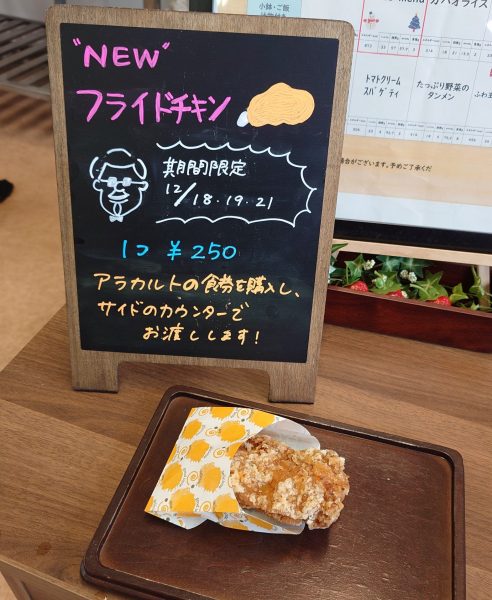 "NEW"
フライドチキン
期間限定
12/18.19.21
1コ ¥250
アラカルトの食券を購入し、
サイドのカウンターで
お渡しします!
小鉢・ご飯
menu ガパオライス
トマトクリーム
スパゲティ
たっぷり野菜の
タンメン
ふわ玉
場合がございます。予めご了承くだ